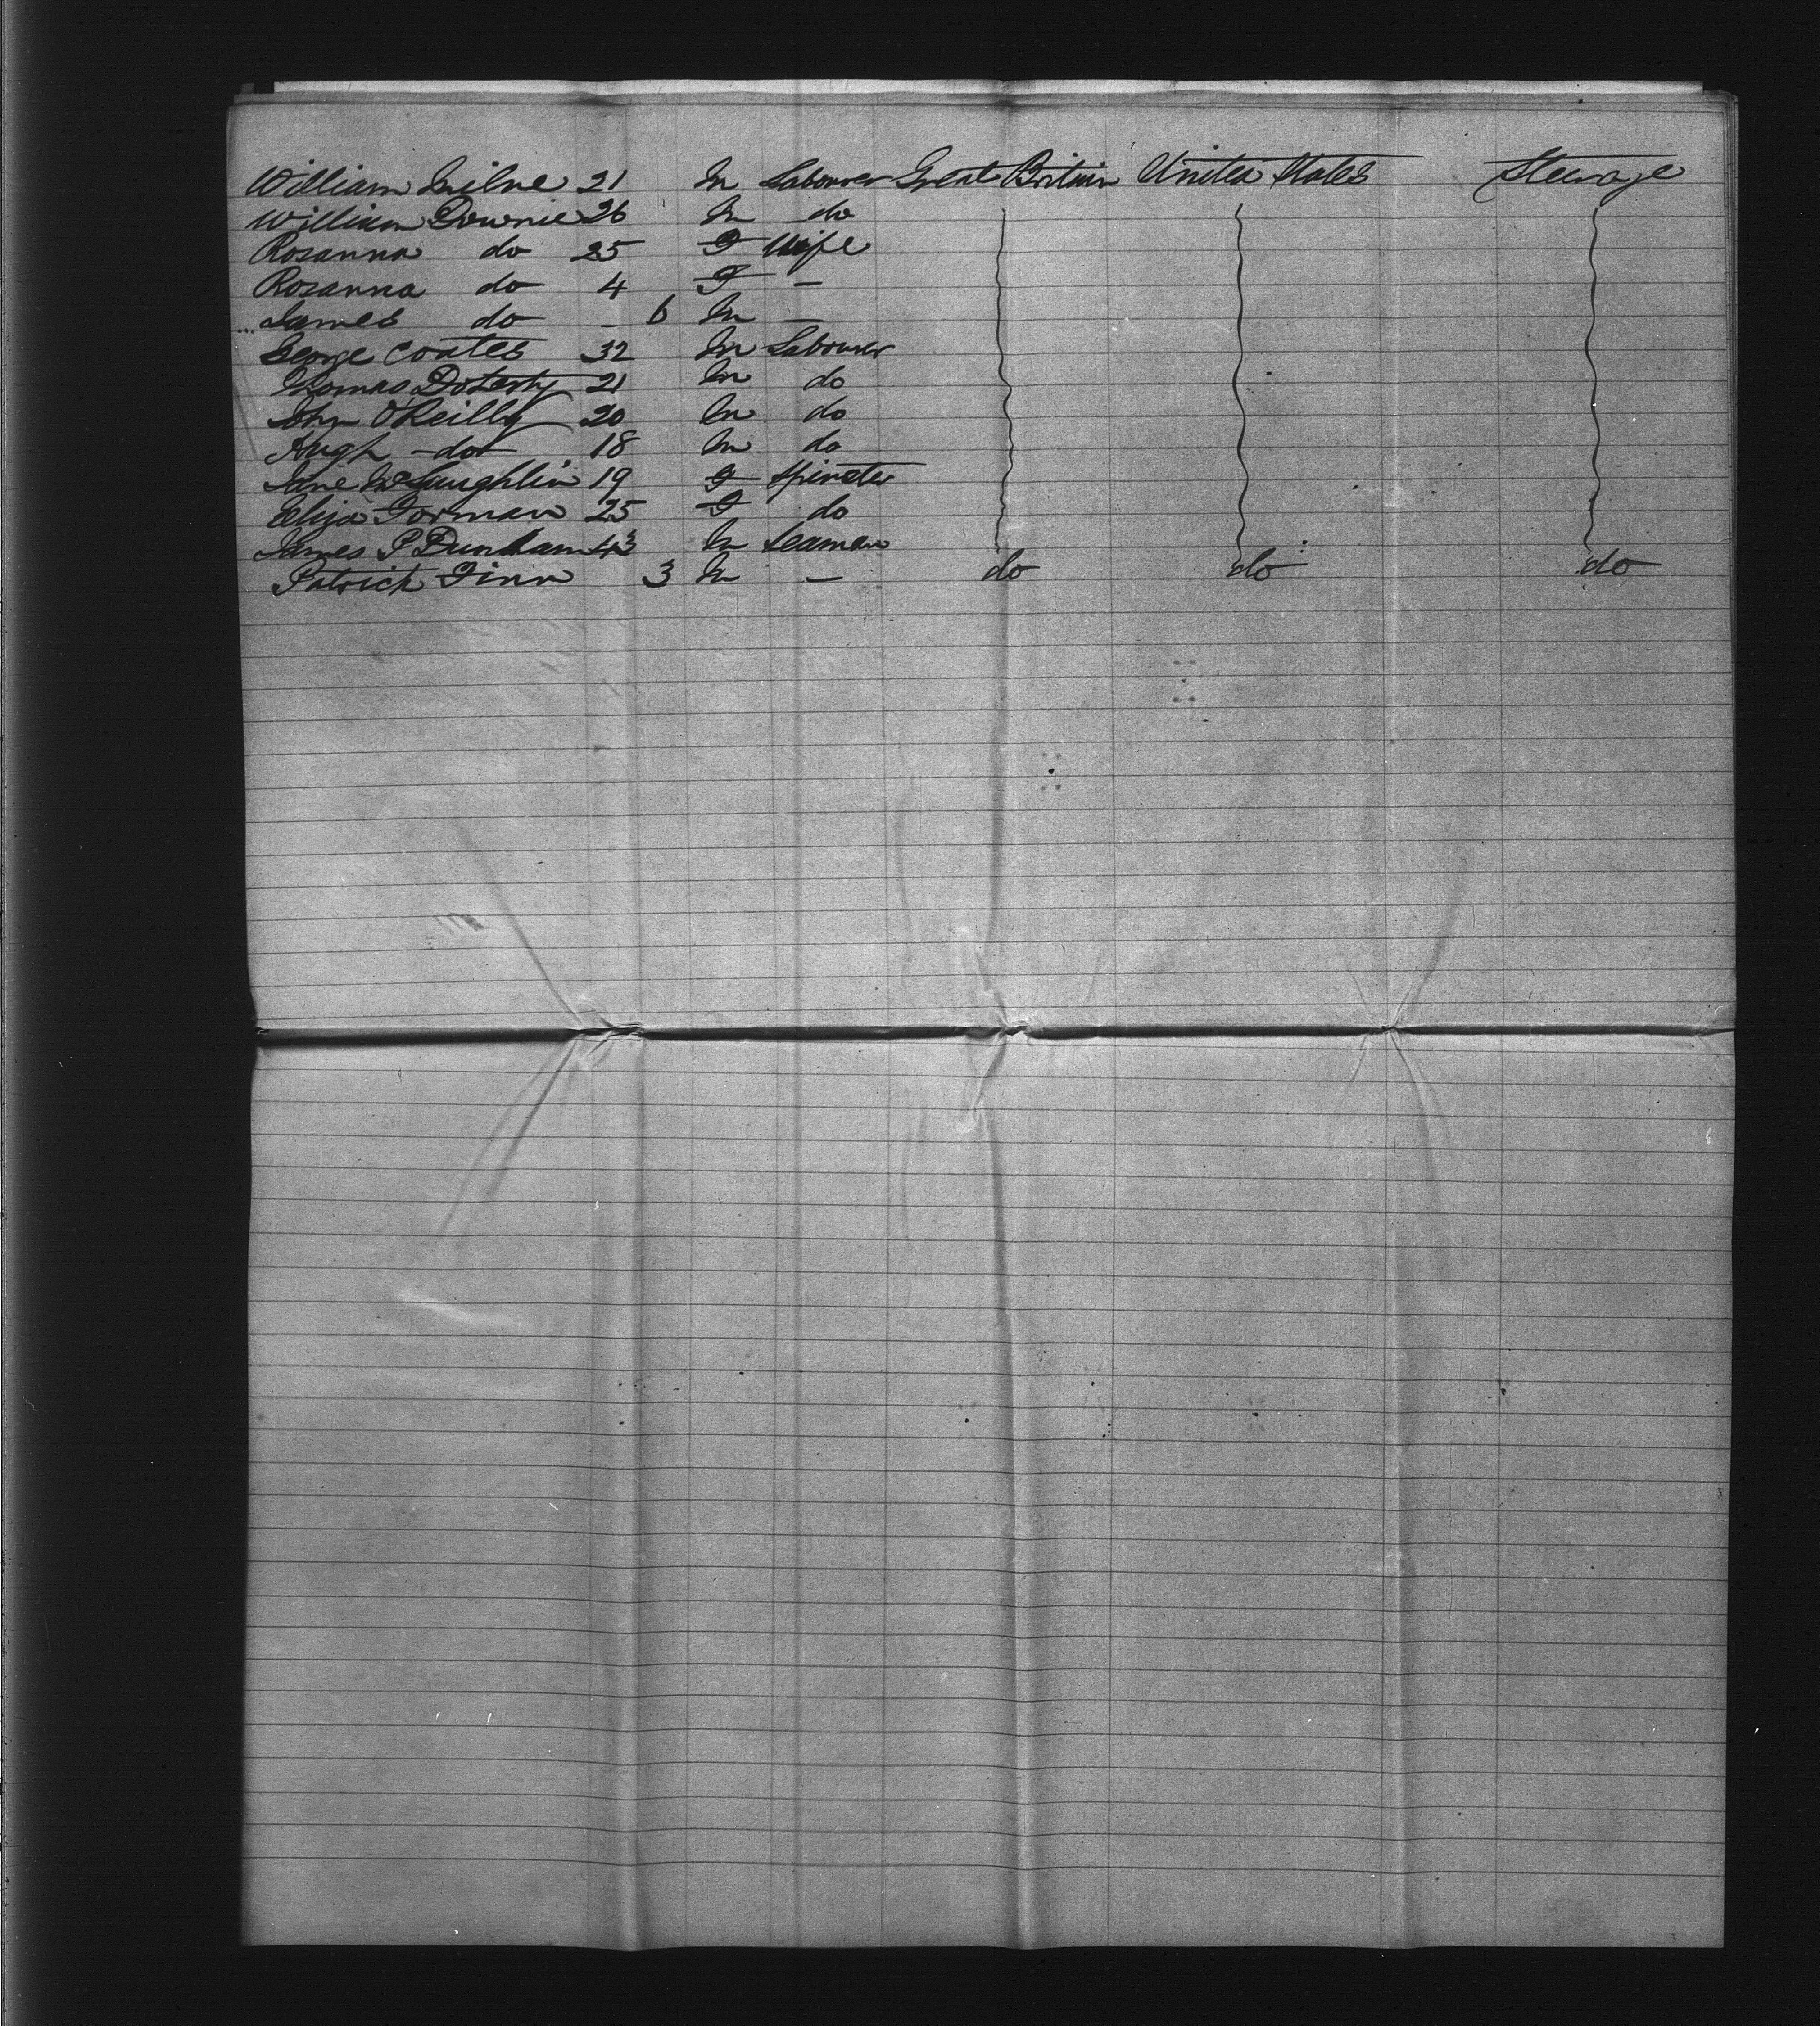 William Milne 21 M Labourer Great Britain United States Steerage
William Downie 26 M do
Rosanna do 25 F Wife
Rosanna do 4 F —
James do - 6 M —
George Coates 32 M Labourer
Thomas Doherty 21 M do
John O'Reilly 20 M do
Hugh do 18 M do
Jane McLaughlin 19 F Spinster
Eliza Gorman 25 F do
James P Dunham 43 M Seaman
Patrick Finn 3 M — do do do